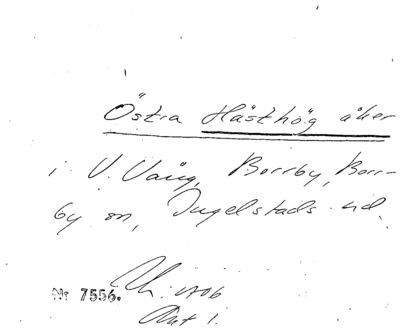 Östra Hästhög åker
i V. Vång, Borrby, Borr-
by sn, Ingelstads hd.
Nr 7556.